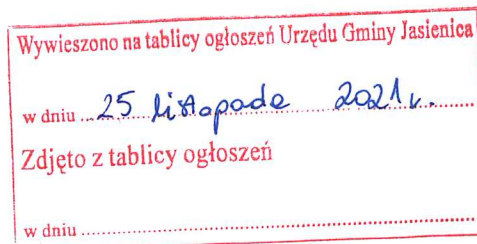 Wywieszono na tablicy ogłoszeń Urzędu Gminy Jasienica
w dniu ... 25 listopada 2021 r. ...
Zdjęto z tablicy ogłoszeń
w dniu ...